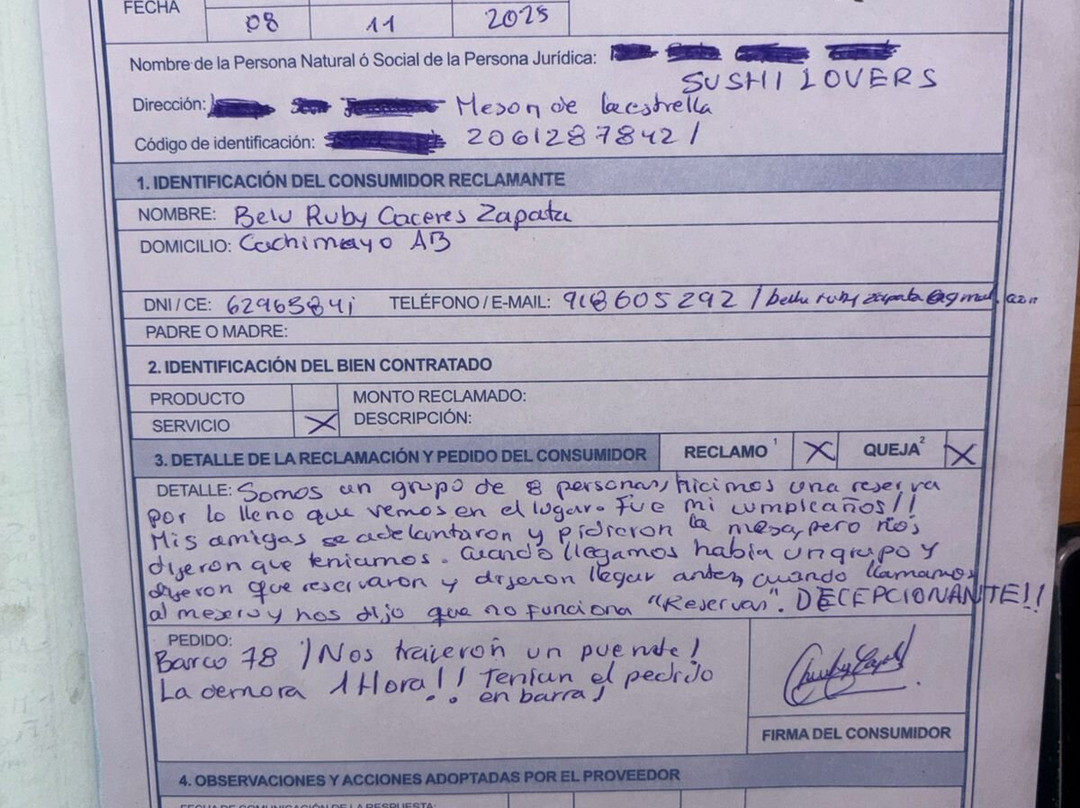 FECHA 08 11 2025
Nombre de la Persona Natural ó Social de la Persona Jurídica:
SUSHI LOVERS
Dirección: Meson de la estrella
Código de identificación: 20612878421
1. IDENTIFICACIÓN DEL CONSUMIDOR RECLAMANTE
NOMBRE: Belu Ruby Caceres Zapata
DOMICILIO: Cachimayo AB
DNI / CE: 62965841 TELÉFONO / E-MAIL: 918605292 /
PADRE O MADRE:
2. IDENTIFICACIÓN DEL BIEN CONTRATADO
PRODUCTO MONTO RECLAMADO:
SERVICIO X DESCRIPCIÓN:
3. DETALLE DE LA RECLAMACIÓN Y PEDIDO DEL CONSUMIDOR RECLAMO 1 X QUEJA 2 X
DETALLE: Somos un grupo de 8 personas, hicimos una reserva
por lo lleno que vemos en el lugar. Fue mi cumpleaños!!
Mis amigas se adelantaron y pidieron la mesa, pero nos
dijeron que teniamos. Cuando llegamos había un grupo y
dijeron que reservaron y dijeron llegar antes, cuando llamamos
al mesero y nos dijo que no funciona "Reservas". DECEPCIONANTE!!
PEDIDO:
Barco 78 ¡Nos trajeron un puente!
La demora 1 Hora!! Tenían el pedido
en barra!
FIRMA DEL CONSUMIDOR
4. OBSERVACIONES Y ACCIONES ADOPTADAS POR EL PROVEEDOR
FECHA DE COMUNICACIÓN DE LA RESPUESTA: